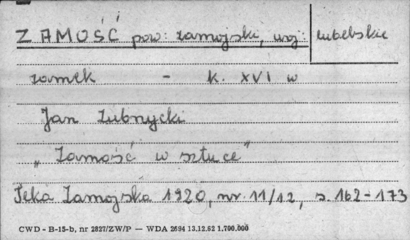 ZAMOŚĆ pow: zamojski, woj: lubelskie
zamek - k. XVI w
Jan Zubrycki
"Zamość w sztuce"
Teka Zamojska 1920, nr. 11/12, s. 162-173
CWD - B-15-b, nr 2827/ZW/P — WDA 2694 13.12.62 1.700.000